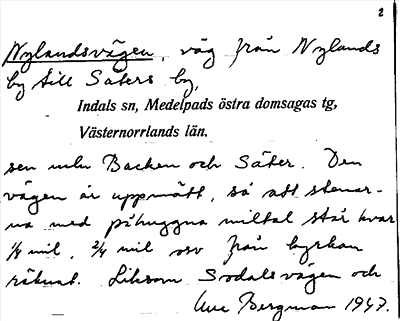 2
Nylandsvägen, väg från Nylands
by till Säters by,
Indals sn, Medelpads östra domsagas tg,
Västernorrlands län.
sen mln Backen och Säter. Den
vägen är uppmätt, så att stenar-
na med påhuggna miltal står kvar
1/8 mil, 2/4 mil osv från kyrkan
räknat. Liksom Sodalsvägen och
Bergman 1947.